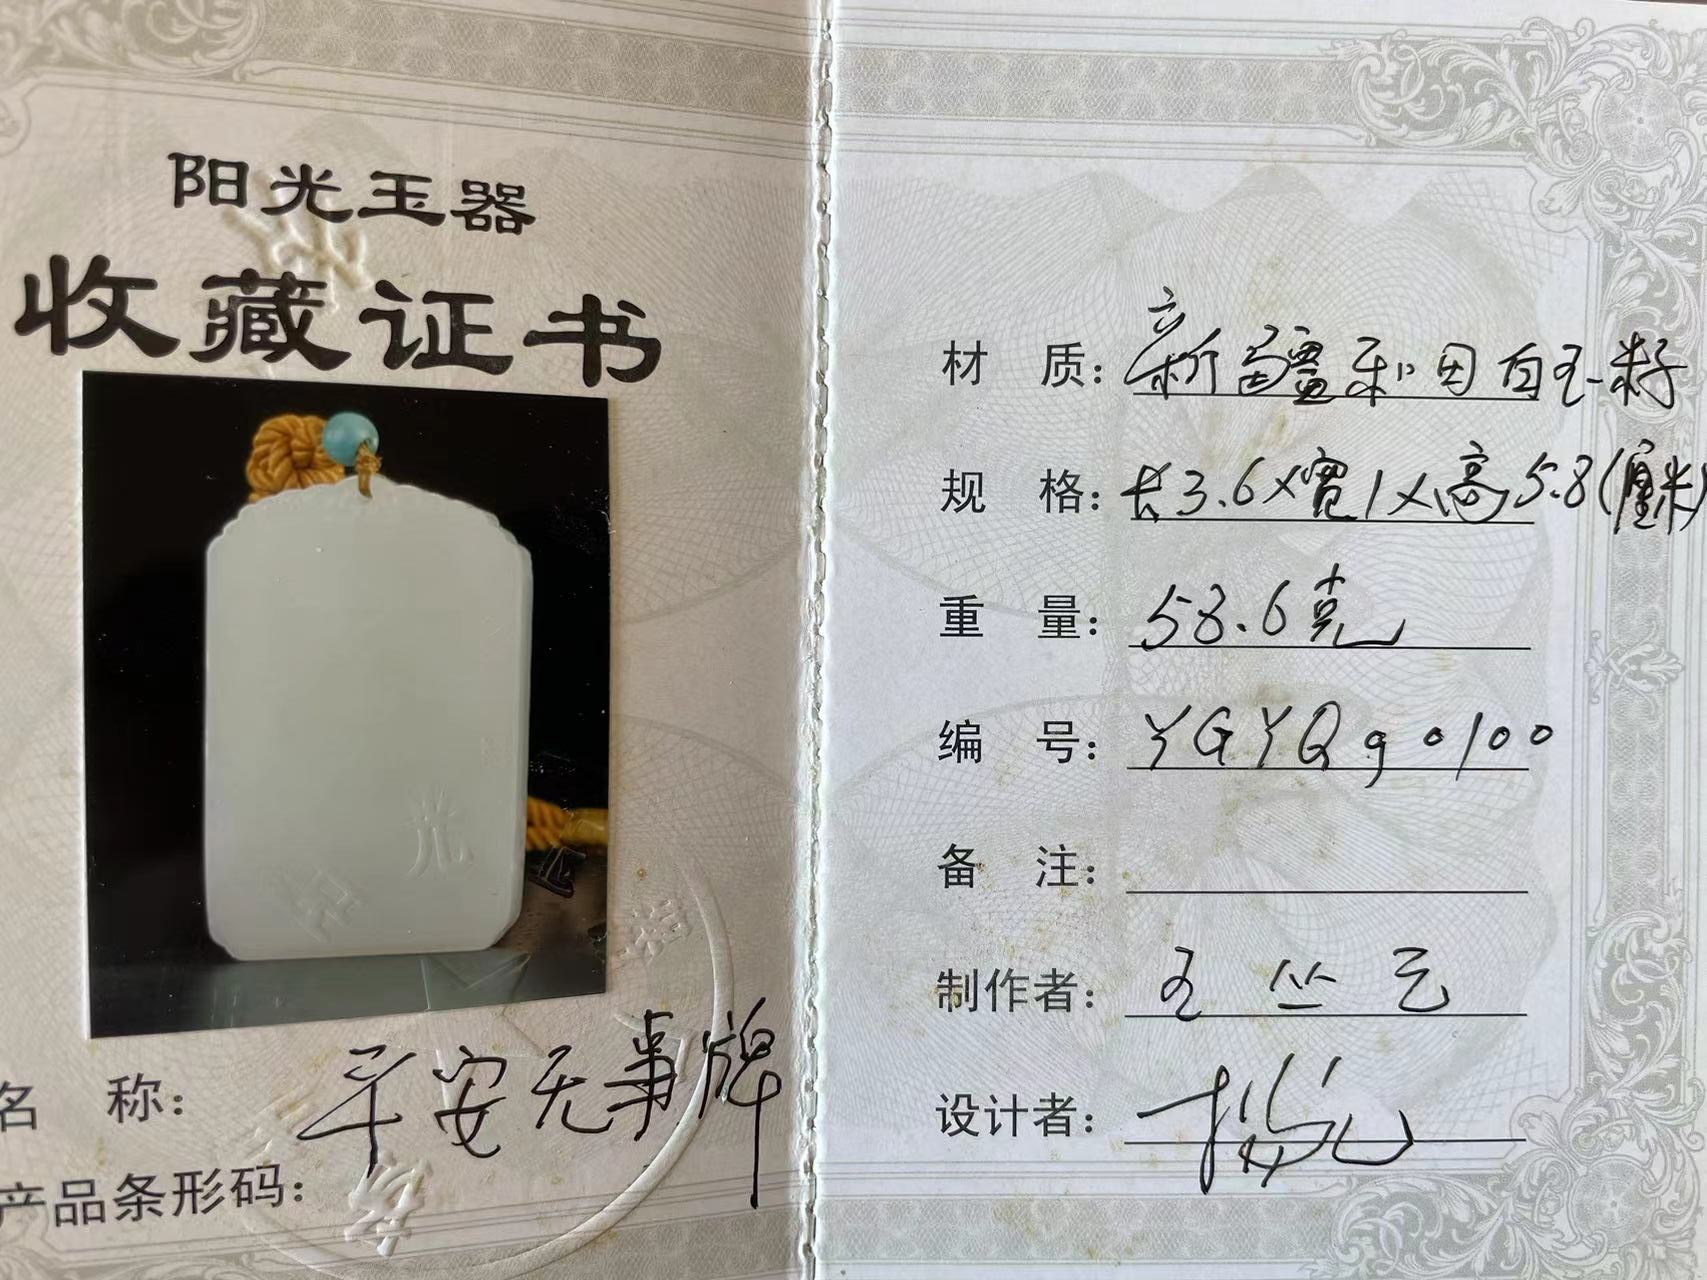 阳光玉器
收藏证书
名 称：平安无事牌
产品条形码：
材 质：新疆和田白玉籽
规 格：长3.6×宽1×高5.8(厘米)
重 量：58.6克
编 号：YGYQg0100
备 注：
制作者：王丛艺
设计者：